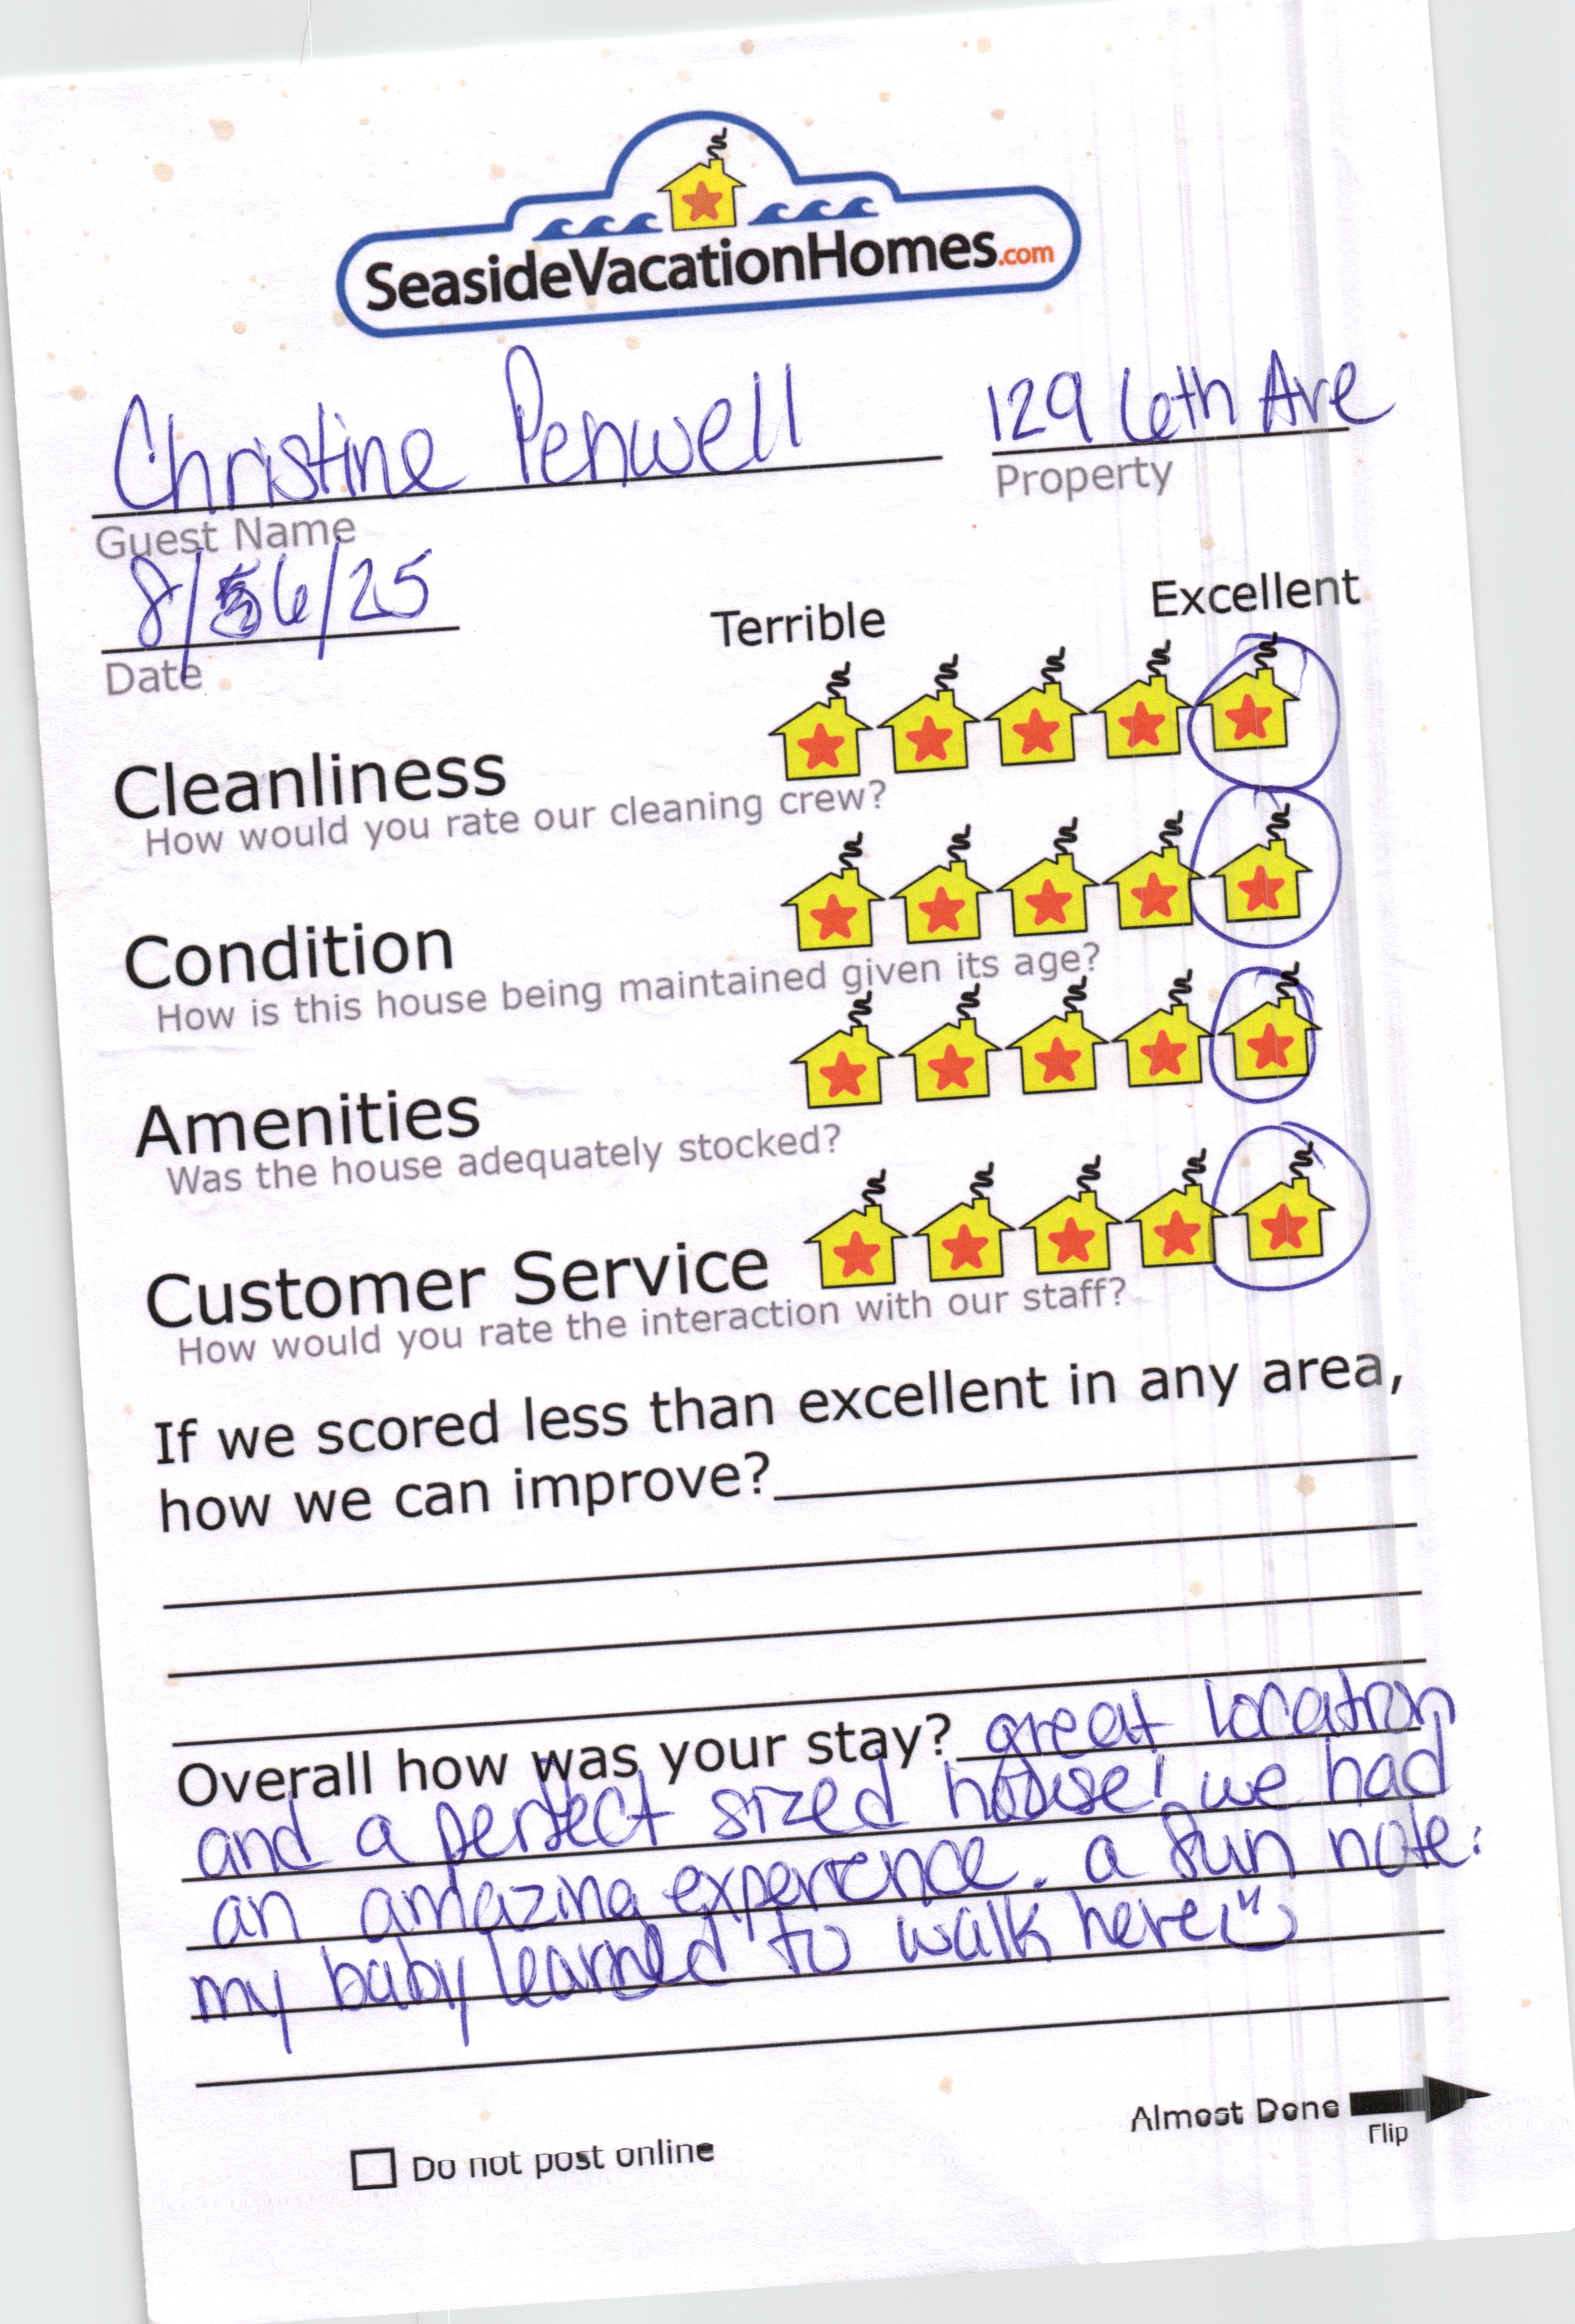 SeasideVacationHomes.com
Christine Penwell 129 6th Ave
Guest Name Property
8/6/25
Date
Terrible Excellent
Cleanliness
How would you rate our cleaning crew?
Condition
How is this house being maintained given its age?
Amenities
Was the house adequately stocked?
Customer Service
How would you rate the interaction with our staff?
If we scored less than excellent in any area,
how we can improve?
Overall how was your stay? great location
and a perfect sized house! we had
an amazing experience. a fun note:
my baby learned to walk here
Almost Done
Flip
Do not post online